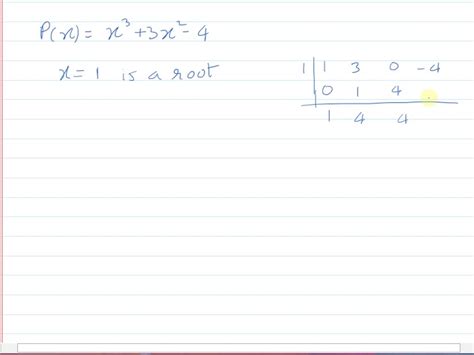 P(x) = x³ + 3x² - 4
x = 1 is a root
1 | 1 3 0 -4
0 1 4
1 4 4